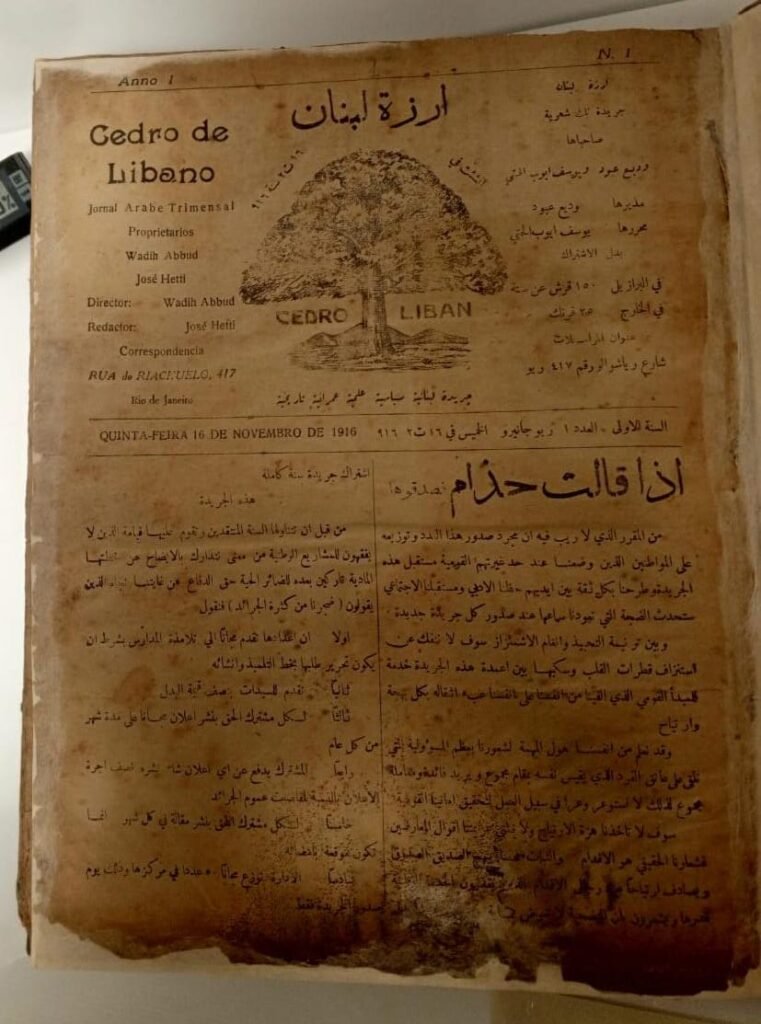 Anno I
N. 1
Cedro de
Libano
Jornal Arabe Trimensal
Proprietarios
Wadih Abbud
José Hetti
Director: Wadih Abbud
Redactor: José Hetti
Correspondencia
RUA do RIACHUELO, 417
Rio de Janeiro
ارزة لبنان
CEDRO LIBAN
جريدة لبنانية سياسية علمية عمرانية تاريخية
ارزة لبنان
جريدة شعرية
صاحباها
وديع عبود ويوسف ايوب الحتي
مديرها وديع عبود
محررها يوسف ايوب الحتي
بدل الاشتراك
في البرازيل ١٥٠ قرش عن سنة
في الخارج ٣٥ فرنك
عنوان المراسلات
شارع رياشوالو رقم ٤١٧ ريو
QUINTA-FEIRA 16 DE NOVEMBRO DE 1916
السنة الاولى - العدد ١ ريو جانيرو الخميس في ١٦ ت٢ ٩١٦
اذا قالت حذام فصدقوها
من المقرر الذي لا ريب فيه ان مجرد صدور هذا العدد وتوزيعه
على المواطنين الذين وضعنا عند حد غيرتهم القومية مستقبل هذه
الجريدة وطرحنا بكل ثقة بين ايديهم حظنا الادبي ومستقبلنا الاجتماعي
ستحدث الضجة التي تعودنا سماعها عند صدور كل جريدة جديدة
وبين ترنيمة التحبيذ وانغام الاشمئزاز سوف لا ننفك عن
استنزاف قطرات القلب وسكبها بين اعمدة هذه الجريدة خدمة
للمبدأ القومي الذي القينا من انفسنا على انفسنا عبء اشغاله بكل بهجة
وارتياح
وقد نعلم من انفسنا هول المهمة لشعورنا بعظم المسؤولية التي
تلقى على عاتق الفرد الذي يقيس نفسه بمقام مجموع ويريد فائدة
مجموع لذلك لا نستوعر وعرا في سبيل العمل لتحقيق امانينا القومية
سوف لا تأخذنا هزة الارتياح ولا يثني اقوال المعارضين
فشعارنا الحقيقي هو الاقدام والثبات
اشتراك جريدة سنة كاملة
هذه الجريدة
من قبل ان تتناولها السنة المنتقدين وتقوم عليها قيامة الذين لا
يفقهون للمشاريع الوطنية من معنى نتدارك بالايضاح عن
المادية تاركين بعده للضائر الحية حق الدفاع عن غايتنا الذين
يقولون ( ضجرنا من كثرة الجرائد ) فنقول
اولا ان تقدم مجانًا الى تلامذة المدارس بشرط ان
يكون تحرير طلبها بخط التلميذ وانشائه
ثانيًا تقدم للسيدات بنصف قيمة البدل
ثالثًا لكل مشترك الحق بنشر اعلان مجانًا على مدة شهر
من كل عام
رابعًا المشترك يدفع عن اي اعلان شاء نشره نصف اجرة
الاعلان بالنسبة عموم الجرائد
خامسًا لكل مشترك الحق بنشر مقالة في كل شهر انما
تكون موقعة بامضائه
سادسًا الادارة توزع مجانًا ٥٠ عددا في مركزها وذلك يوم
صدور الجريدة فقط